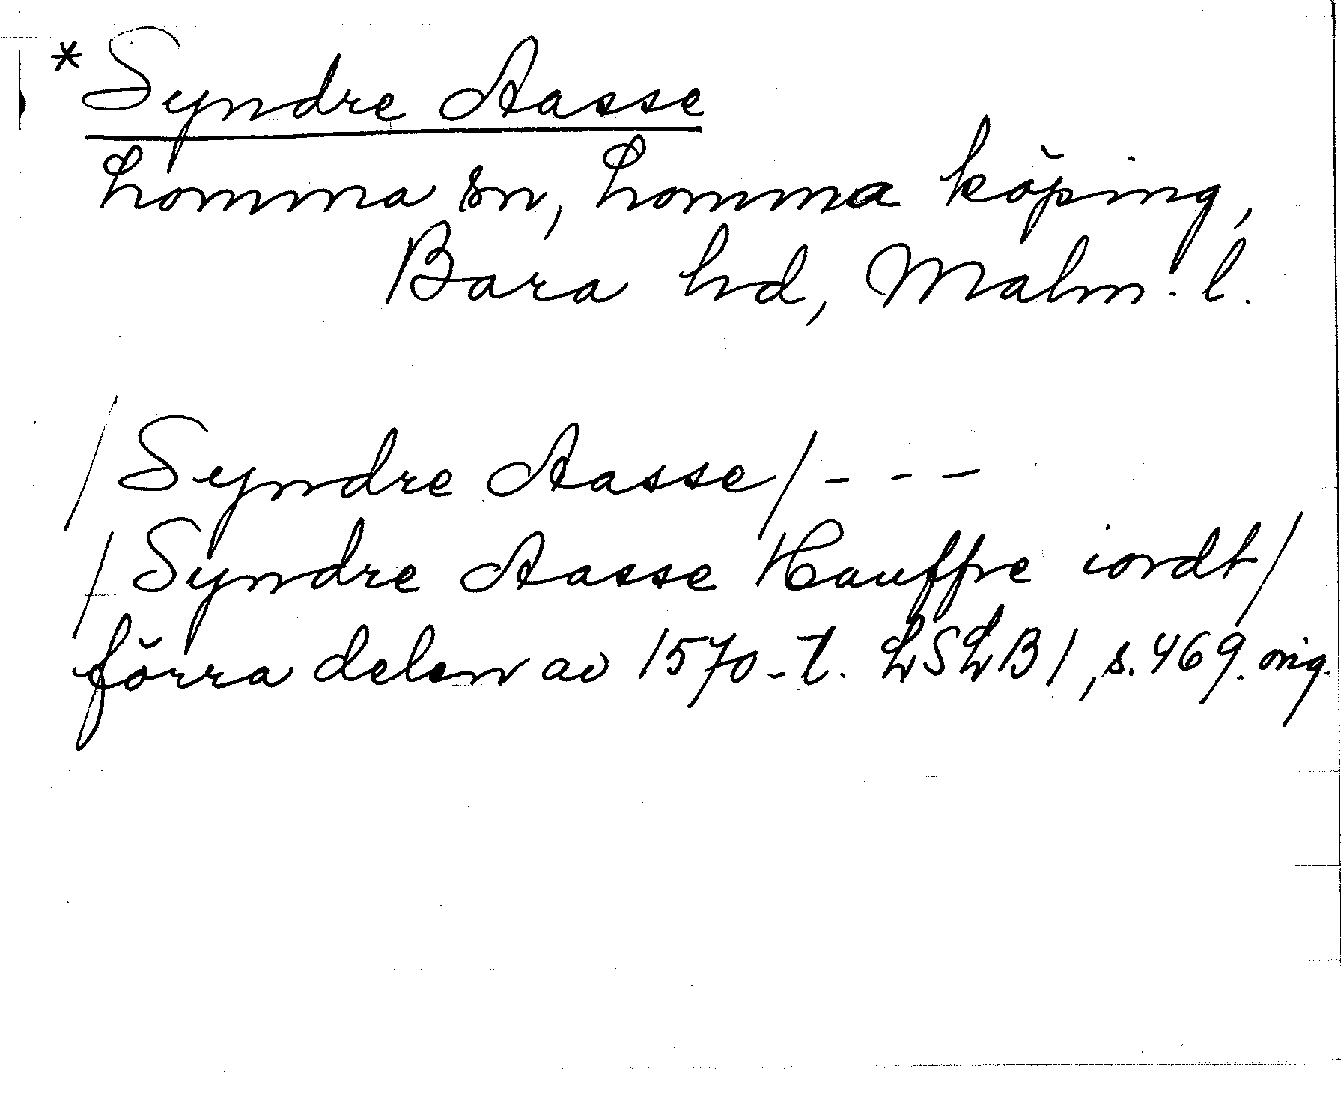 *Syndre Aasse
Lomma sn, Lomma köping,
Bara hd, Malm. l.
/Syndre Aasse/ - - -
/Syndre Aasse Hauffre iordt/
förra delen av 1570-t. LSLB 1, s. 469. orig.